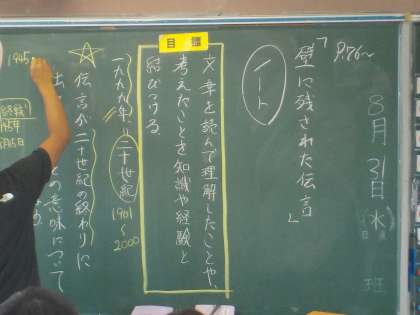 8月31日(水)
班
P.76~
「壁に残された伝言」
ノート
目標
文章を読んで理解したことや、
考えたことを知識や経験と
結びつける
一九九九年、二十世紀
1901
~
2000
☆伝言が二十世紀の終わりに
の意味について
1945